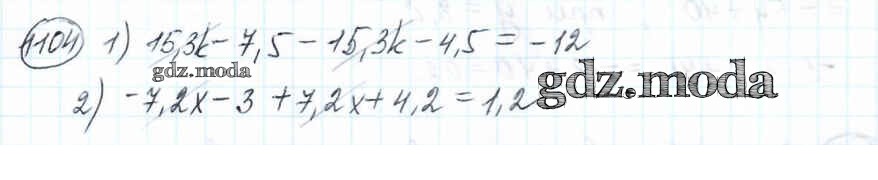 1104 1) 15,3k - 7,5 - 15,3k - 4,5 = -12
gdz.moda
2) -7,2x - 3 + 7,2x + 4,2 = 1,2
gdz.moda